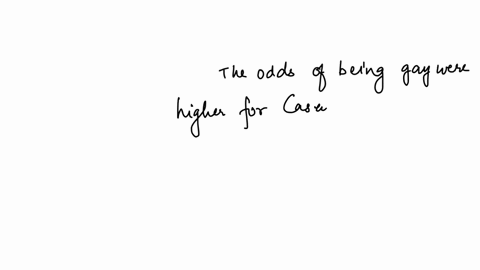 The odds of being gay were
higher for Case